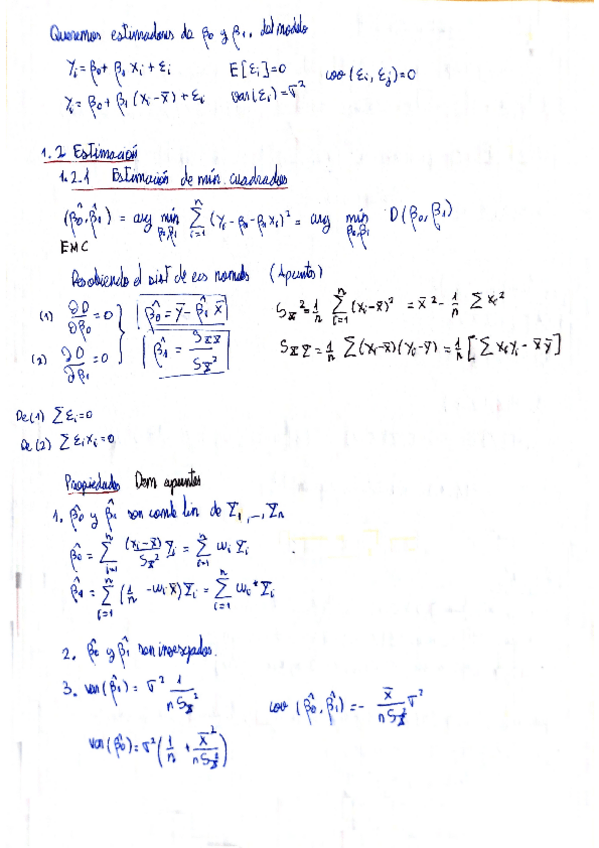 Queremos estimadores de β0 y β1, del modelo
Yi = β0 + β1 xi + εi    E[εi]=0    cov(εi, εj)=0
Yi = β0 + β1 (xi - x̄) + εi    var(εi) = σ²
1.2 Estimación
1.2.1 Estimación de mín. cuadrados
(β̂0, β̂1) = arg min β0,β1 Σ i=1 n (yi - β0 - β1 xi)² = arg min β0,β1 D(β0, β1)
EMC
Resolviendo el sist de ecs normales (Apuntes)
(1) ∂D/∂β0 = 0    β̂0 = ȳ - β̂1 x̄    Sx² = 1/n Σ i=1 n (xi - x̄)² = x̄² - 1/n Σ xi²
(2) ∂D/∂β1 = 0    β̂1 = SxY/Sx²    SxY = 1/n Σ (xi - x̄)(yi - ȳ) = 1/n [Σ xi yi - x̄ ȳ]
De (1) Σ εi = 0
De (2) Σ εi xi = 0
Propiedades Dem apuntes
1. β̂0 y β̂1 son comb lin de Y1, ..., Yn
β̂0 = Σ i=1 n (xi - x̄)/Sx² Yi = Σ i=1 n wi Yi
β̂1 = Σ i=1 n (1/n - wi x̄) Yi = Σ i=1 n wi* Yi
2. β̂0 y β̂1 son insesgados.
3. var(β̂1) = σ² 1/(n Sx²)    cov(β̂0, β̂1) = - x̄/(n Sx²) σ²
var(β̂0) = σ² (1/n + x̄²/(n Sx²))